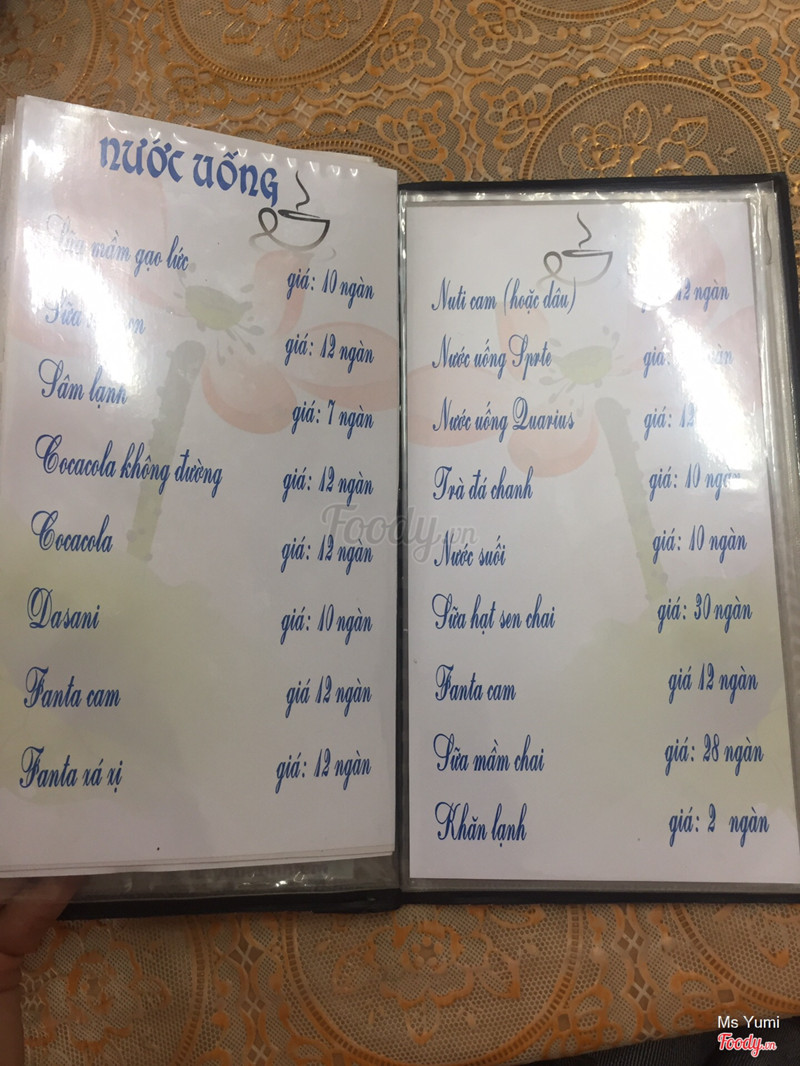 NƯỚC UỐNG
Sữa mầm gạo lức giá: 10 ngàn
Sữa giá: 12 ngàn
Sâm lạnh giá: 7 ngàn
Cocacola không đường giá: 12 ngàn
Cocacola giá: 12 ngàn
Dasani giá: 10 ngàn
Fanta cam giá 12 ngàn
Fanta xá xị giá: 12 ngàn
Nuti cam (hoặc dâu) 12 ngàn
Nước uống Sprte giá: ngàn
Nước uống Quarius giá: 12
Trà đá chanh giá: 10 ngàn
Nước suối giá: 10 ngàn
Sữa hạt sen chai giá: 30 ngàn
Fanta cam giá 12 ngàn
Sữa mầm chai giá: 28 ngàn
Khăn lạnh giá: 2 ngàn
Foody.vn
Ms Yumi
Foody.vn